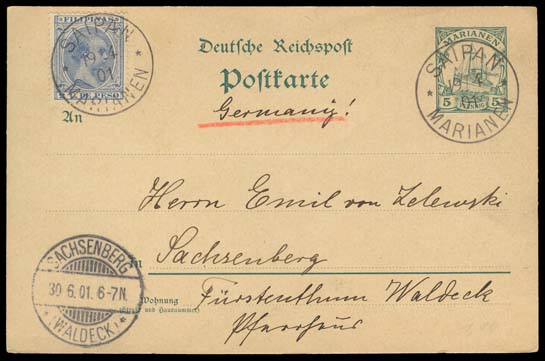 FILIPINAS
DE PESO
SAIPAN
01
MARIANEN
Deutsche Reichspost
Postkarte
Germany!
MARIANEN
5 5
SAIPAN
01
* MARIANEN *
An
Herrn Emil von Zelewski
in Sachsenberg
Wohnung
(Straße und Hausnummer)
Fürstenthum Waldeck
Pfarrhaus
SACHSENBERG
30.6.01.6-7N.
*(WALDECK)*